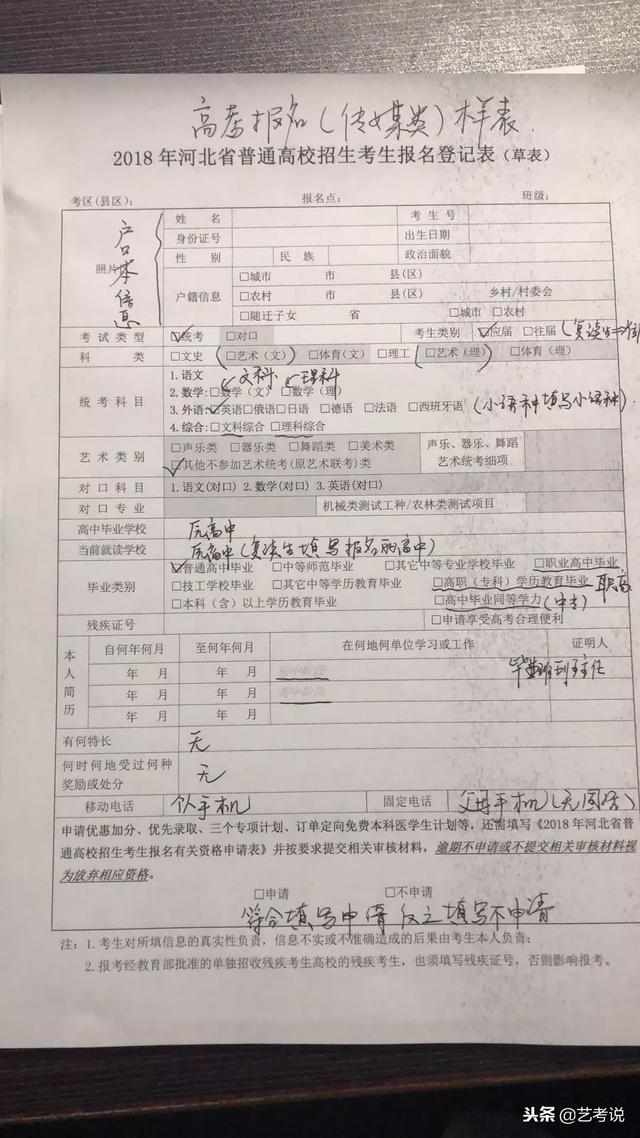 高考报名(传媒类)样表
2018年河北省普通高校招生考生报名登记表(草表)
考区(县区): 报名点: 班级:
照片 户口本信息 姓名 考生号
身份证号 出生日期
性别 民族 政治面貌
户籍信息 □城市 市 县(区)
□农村 市 县(区) 乡村/村委会
□随迁子女 省 □城市 □农村
考试类型 ☑统考 □对口 考生类别 ☑应届 □往届
科类 □文史 (□艺术(文) □体育(文) □理工 (□艺术(理) □体育(理)
统考科目 1.语文 文科 理科
2.数学:□数学(文) □数学(理)
3.外语:☑英语□俄语□日语 □德语 □法语 □西班牙语 (小语种填写小语种)
4.综合:□文科综合 □理科综合
艺术类别 □声乐类 □器乐类 □舞蹈类 □美术类 声乐、器乐、舞蹈
☑其他不参加艺术统考(原艺术联考)类 艺术统考细项
对口科目 1.语文(对口) 2.数学(对口) 3.英语(对口)
对口专业 机械类测试工种/农林类测试项目
高中毕业学校 原高中
当前就读学校 原高中(复读生填写报名的高中)
毕业类别 ☑普通高中毕业 □中等师范毕业 □其它中等专业学校毕业 □职业高中毕业
□技工学校毕业 □其它中等学历教育毕业 □高职(专科)学历教育毕业 职高
□本科(含)以上学历教育毕业 □高中毕业同等学力(中专)
残疾证号 □申请享受高考合理便利
本人简历 自何年何月 至何年何月 在何地何单位学习或工作 证明人
年 月 年 月 初中阶段 班主任
年 月 年 月 高中阶段
年 月 年 月
有何特长 无
何时何地受过何种
奖励或处分 无
移动电话 手机 固定电话 父母手机
申请优惠加分、优先录取、三个专项计划、订单定向免费本科医学生计划等,还需填写《2018年河北省普
通高校招生考生报名有关资格申请表》并按要求提交相关审核材料,逾期不申请或不提交相关审核材料视
为放弃相应资格。
□申请 □不申请
符合填写申请 反之填写不申请
注:1.考生对所填信息的真实性负责,信息不实或不准确造成的后果由考生本人负责;
2.报考经教育部批准的单独招收残疾考生高校的残疾考生,也须填写残疾证号,否则影响报考。
头条 @艺考说